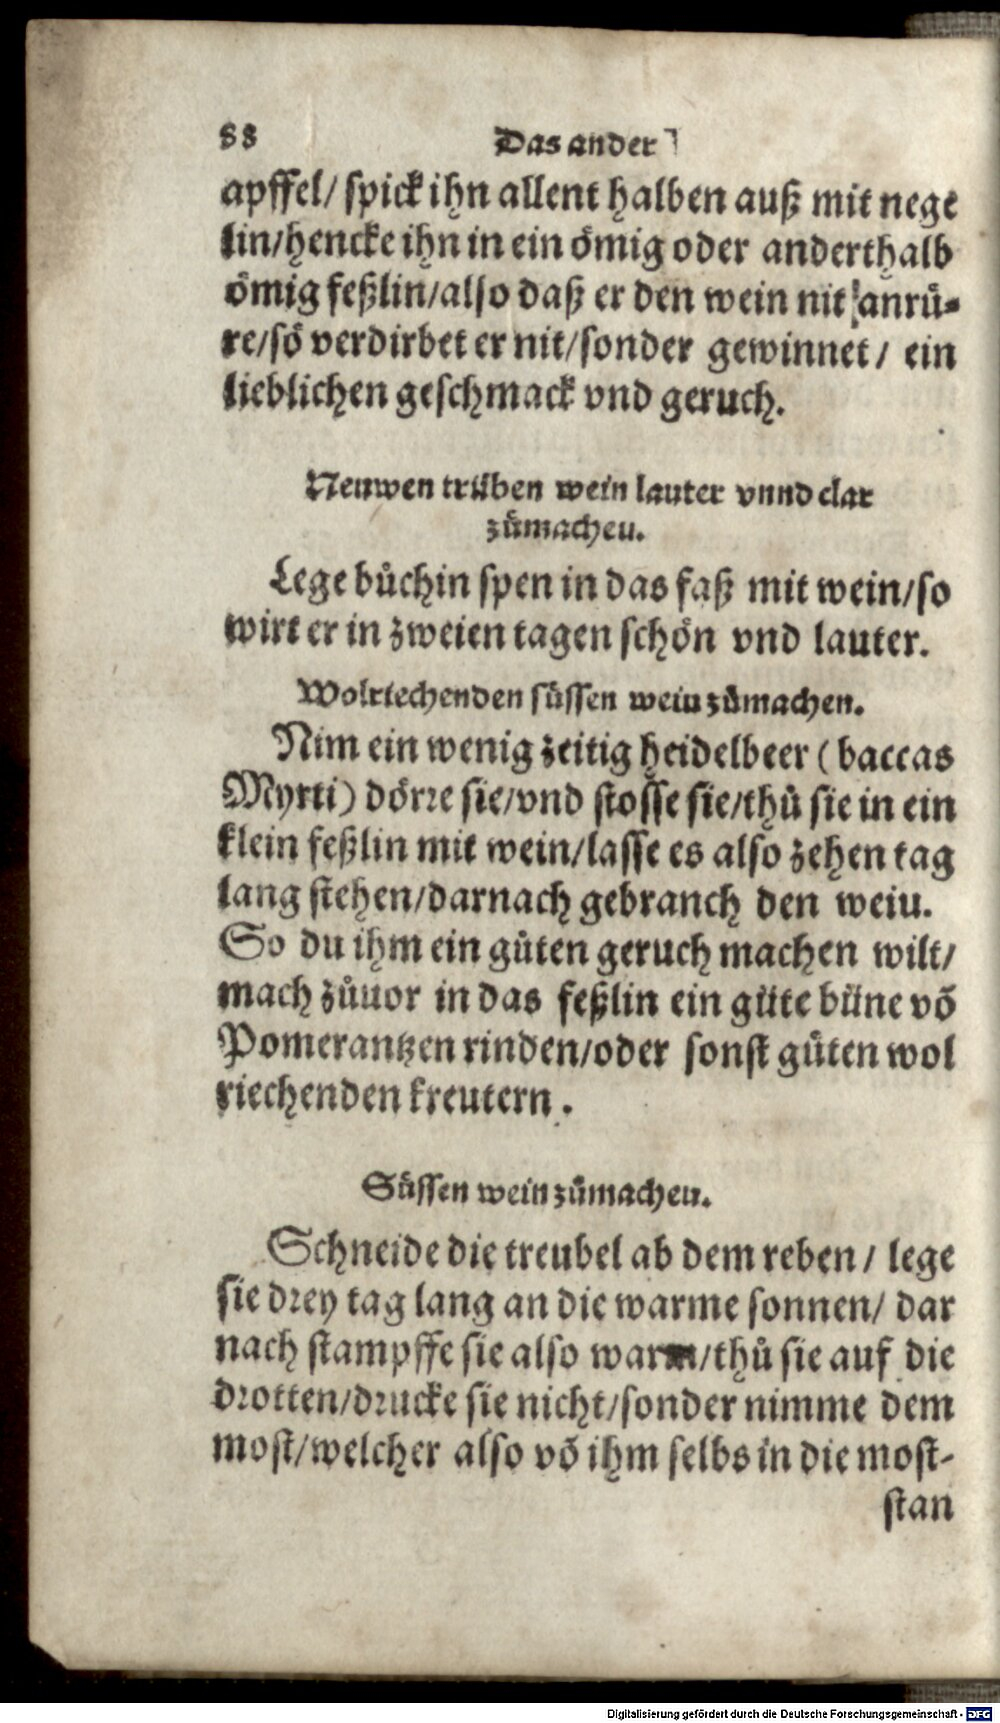 88 Das ander
apffel/ spick ihn allent halben auß mit nege
lin/hencke ihn in ein ömig oder anderthalb
ömig feßlin/also daß er den wein nit anrů-
re/sö verdirbet er nit/sonder gewinnet/ ein
lieblichen geschmack vnd geruch.
Neuwen trüben wein lauter vnnd clar
zůmacheu.
Lege bůchin spen in das faß mit wein/so
wirt er in zweien tagen schön vnd lauter.
Wolriechenden süssen weiu zůmachen.
Nim ein wenig zeitig heidelbeer (baccas
Myrti) dörre sie/vnd stosse sie/thů sie in ein
klein feßlin mit wein/lasse es also zehen tag
lang stehen/darnach gebranch den weiu.
So du ihm ein gůten geruch machen wilt/
mach zůuor in das feßlin ein gůte büne võ
Pomerantzen rinden/oder sonst gůten wol
riechenden kreutern.
Süssen wein zůmacheu.
Schneide die treubel ab dem reben/ lege
sie drey tag lang an die warme sonnen/ dar
nach stampffe sie also warm/thů sie auf die
drotten/drucke sie nicht/sonder nimme dem
most/welcher also võ ihm selbs in die most-
stan
Digitalisierung gefördert durch die Deutsche Forschungsgemeinschaft - DFG